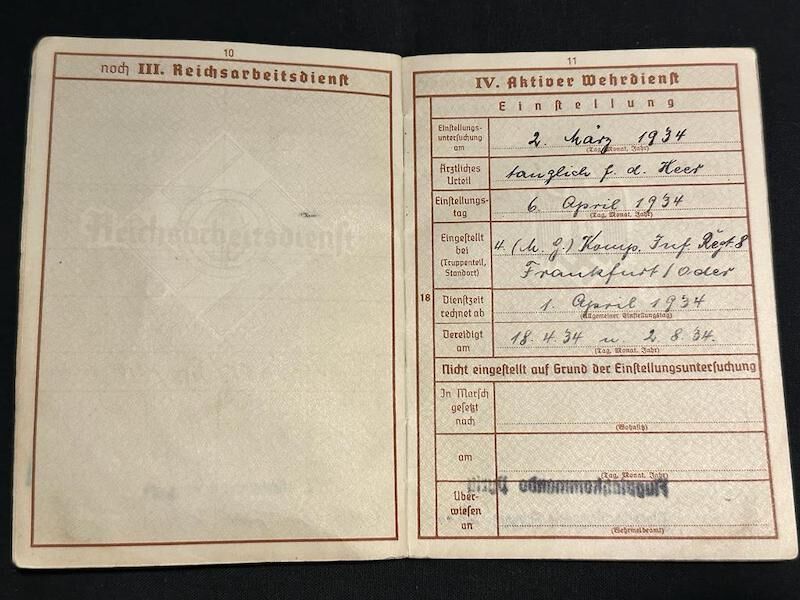 10
noch III. Reichsarbeitsdienst
11
IV. Aktiver Wehrdienst
Einstellung
Einstellungs-
untersuchung
am
2. März 1934
(Tag, Monat, Jahr)
Ärztliches
Urteil
tauglich f. d. Heer
Einstellungs-
tag
6. April 1934
(Tag, Monat, Jahr)
Eingestellt
bei
(Truppenteil,
Standort)
4. (M. G.) Komp. Inf. Regt. 8
Frankfurt / Oder
18
Dienstzeit
rechnet ab
1. April 1934
(Allgemeiner Einstellungstag)
Vereidigt
am
18. 4. 34 u. 2. 8. 34.
(Tag, Monat, Jahr)
Nicht eingestellt auf Grund der Einstellungsuntersuchung
In Marsch
gesetzt
nach
(Wohnsitz)
am
(Tag, Monat, Jahr)
Über-
wiesen
an
(Wehrmeldeamt)